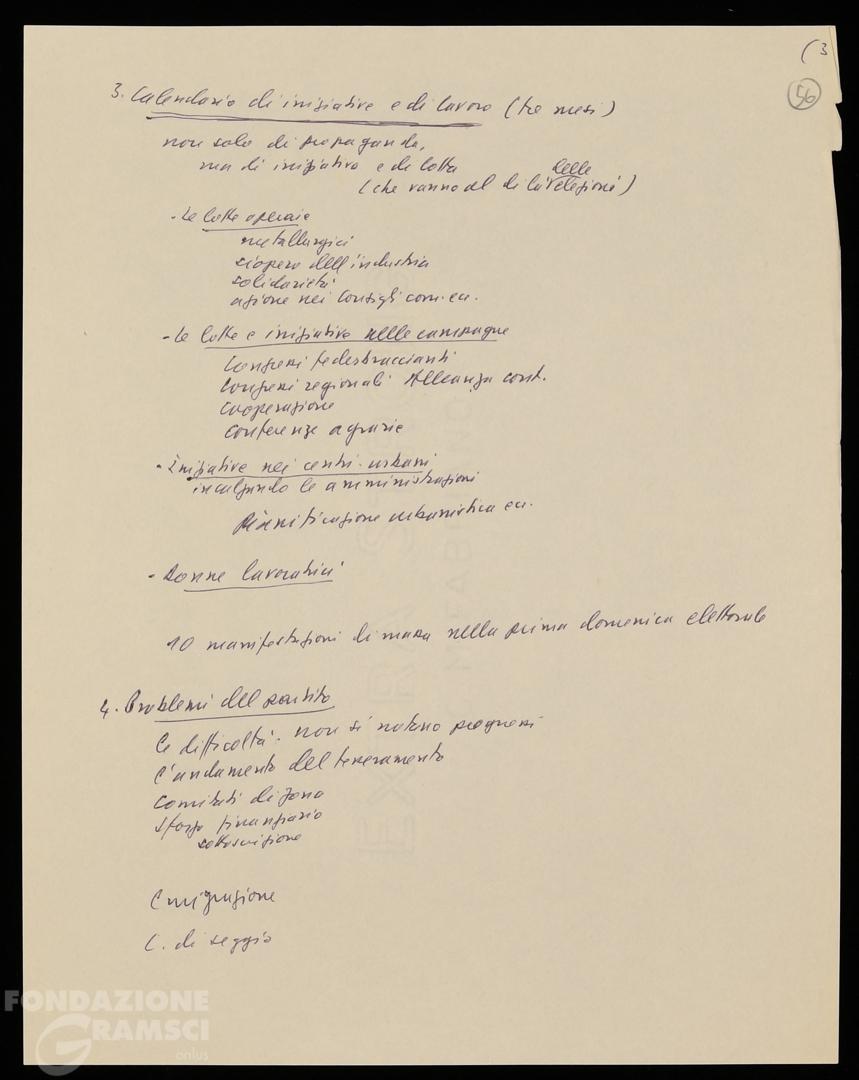 (3
56
3. Calendario di iniziative e di lavoro (tre mesi)
non solo di propaganda,
ma di iniziativa e di lotta
delle
(che vanno al di là elezioni)
- Le lotte operaie
metallurgici
sciopero dell'industria
solidarietà
azione nei Consigli com. ecc.
- Le lotte e iniziative nelle campagne
Congressi federbraccianti
Congressi regionali Alleanza cont.
Cooperazione
conferenze agrarie
- Iniziative nei centri urbani
incalzando le amministrazioni
Pianificazione urbanistica ecc.
- Donne lavoratrici
10 manifestazioni di massa nella prima domenica elettorale
4. Problemi del partito
Le difficoltà. non si notano progressi
L'andamento del tesseramento
Comitati di zona
sforzo finanziario
sottoscrizione
Emigrazione
C. di seggio
FONDAZIONE
GRAMSCI
onlus